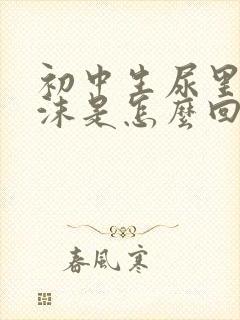 初中生尿里
沫是怎麼回
春風寒